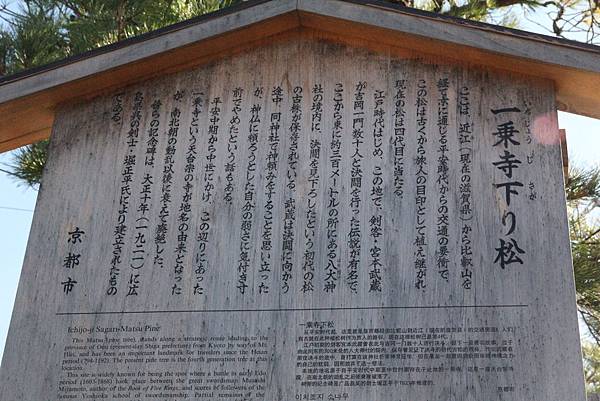 一乗寺下り松
いちじょうじ さが
ここは、近江(現在の滋賀県)から比叡山を
経て京に通じる平安時代からの交通の要衝で、
この松は古くから旅人の目印として植え継がれ、
現在の松は四代目に当たる。
江戸時代はじめ、この地で、剣客・宮本武蔵
が吉岡一門数十人と決闘を行った伝説が有名で、
ここから東に約三百メートルの所にある八大神
社の境内に、決闘を見下ろしたという初代の松
の古株が保存されている。武蔵は決闘に向かう
途中、同神社で神頼みをすることを思い立った
が、神仏に頼ろうとした自分の弱さに気付き寸
前でやめたという話もある。
平安中期から中世にかけ、この辺りにあった
一乗寺という天台宗の寺が地名の由来となった
が、南北朝の動乱以後に衰えて廃絶した。
傍らの記念碑は、大正十年(一九二一)に広
島県呉の剣士・堀正平氏により建立されたもの
である。
京都市
Ichijo-ji Sagari-Matsu Pine
This Matsu (pine tree), stands along a strategic route leading to the
province of Omi (present-day Shiga prefecture) from Kyoto by way of Mt.
Hiei, and has been an important landmark for travelers since the Heian
period (794-1192). The present pine tree is the fourth generation tree at this
location.
This site is widely known for being the spot where a battle in early Edo
period (1603-1868) took place between the great swordsman, Musashi
Miyamoto, author of the Book of Five Rings, and scores of followers of the
famous Yoshioka school of swordsmanship. Partial remains of the
一乘寺下松
이치조지 소나무